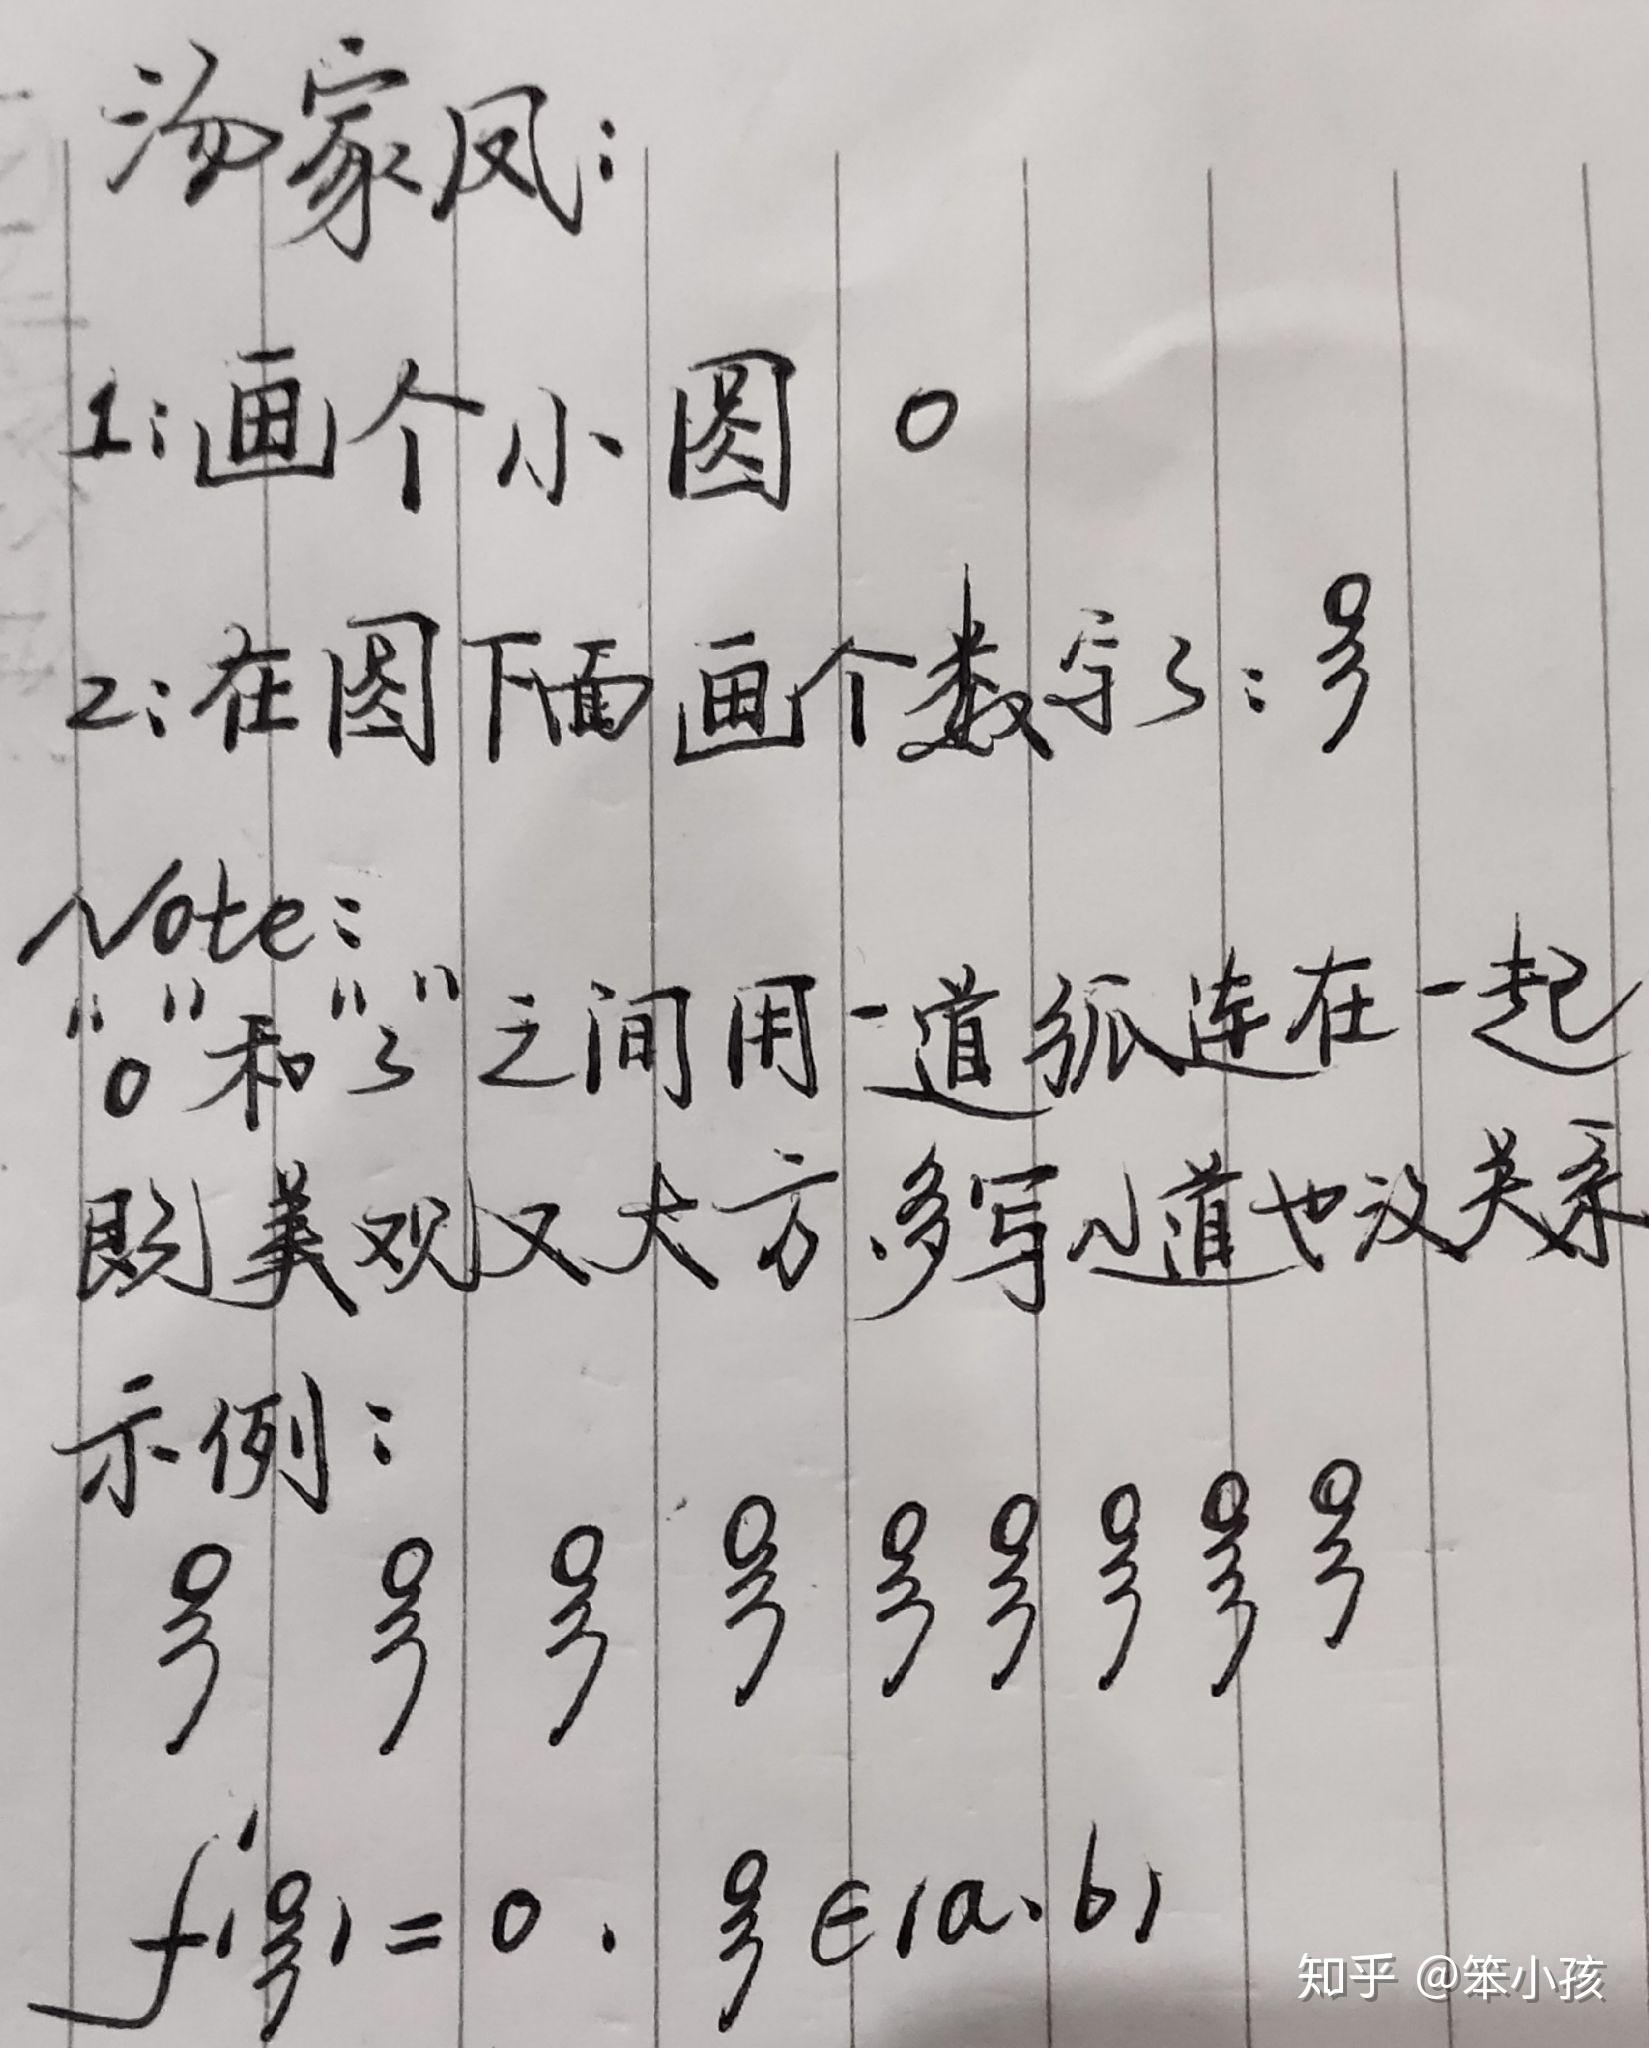 汤家凤：
1：画个小圆 0
2：在圆下面画个数字3：ξ
Note：
“0”和“3”之间用一道弧连在一起
既美观又大方，多写几道也没关系
示例：
ξ ξ ξ ξ ξ ξ ξ ξ ξ
f'(ξ)=0，ξ∈(a,b)
知乎 @笨小孩